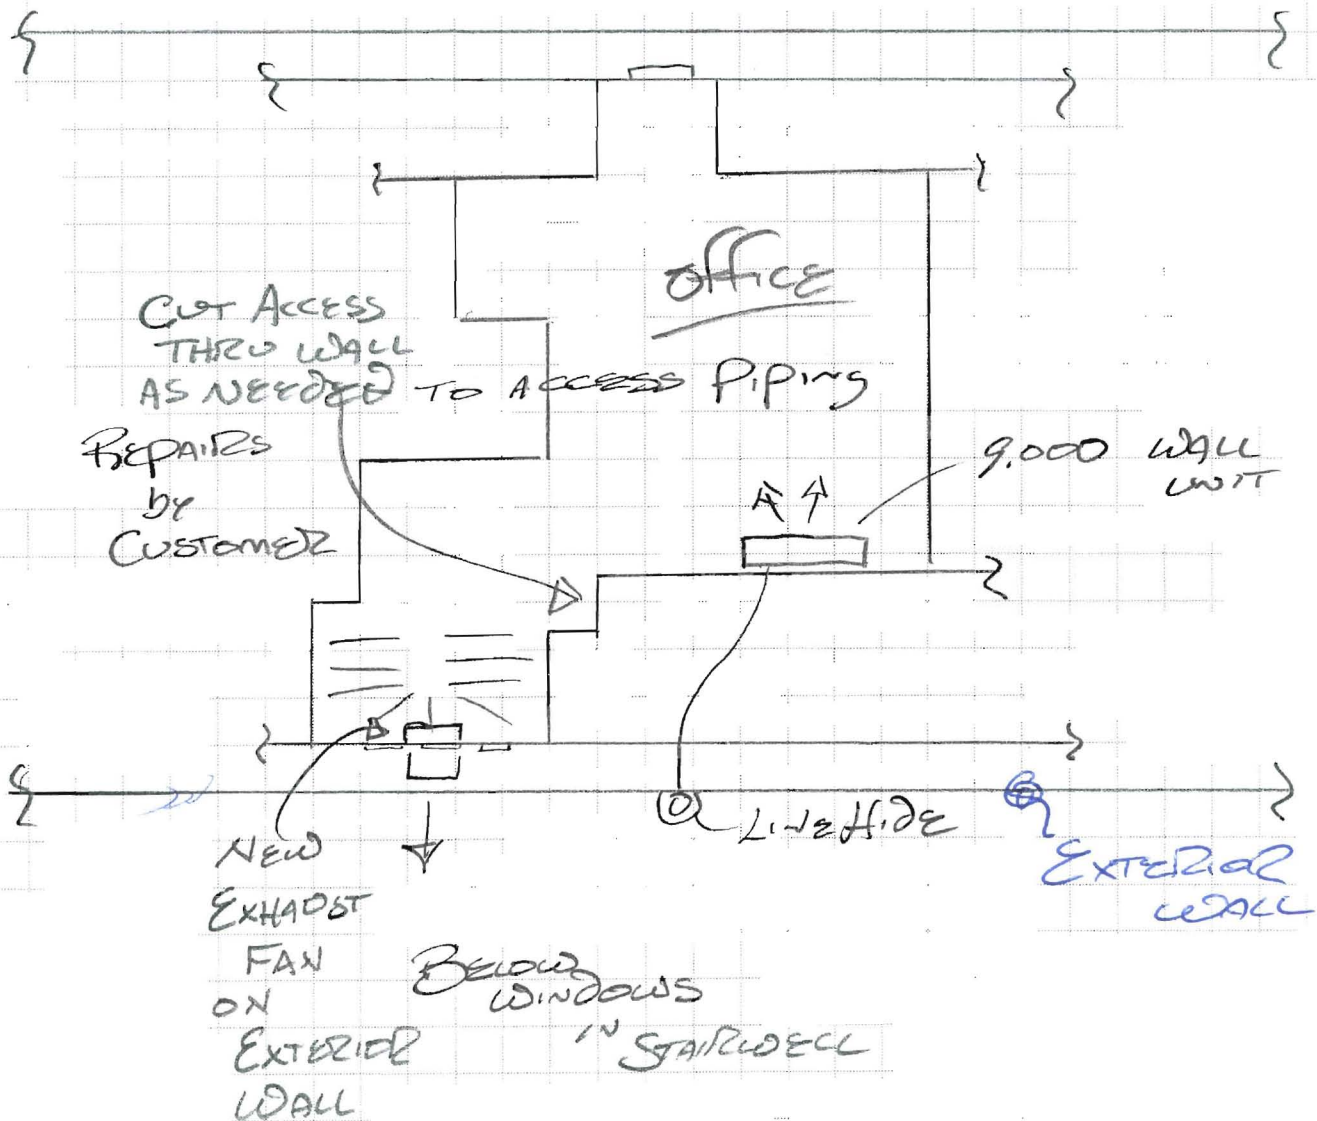 Office
Cut Access
Thru Wall
As Needed to Access Piping
Repairs
by
Customer
9,000 Wall
Unit
Line Hide
Exterior
Wall
New
Exhaust
Fan
on
Exterior
Wall
Below
Windows
in Stairwell